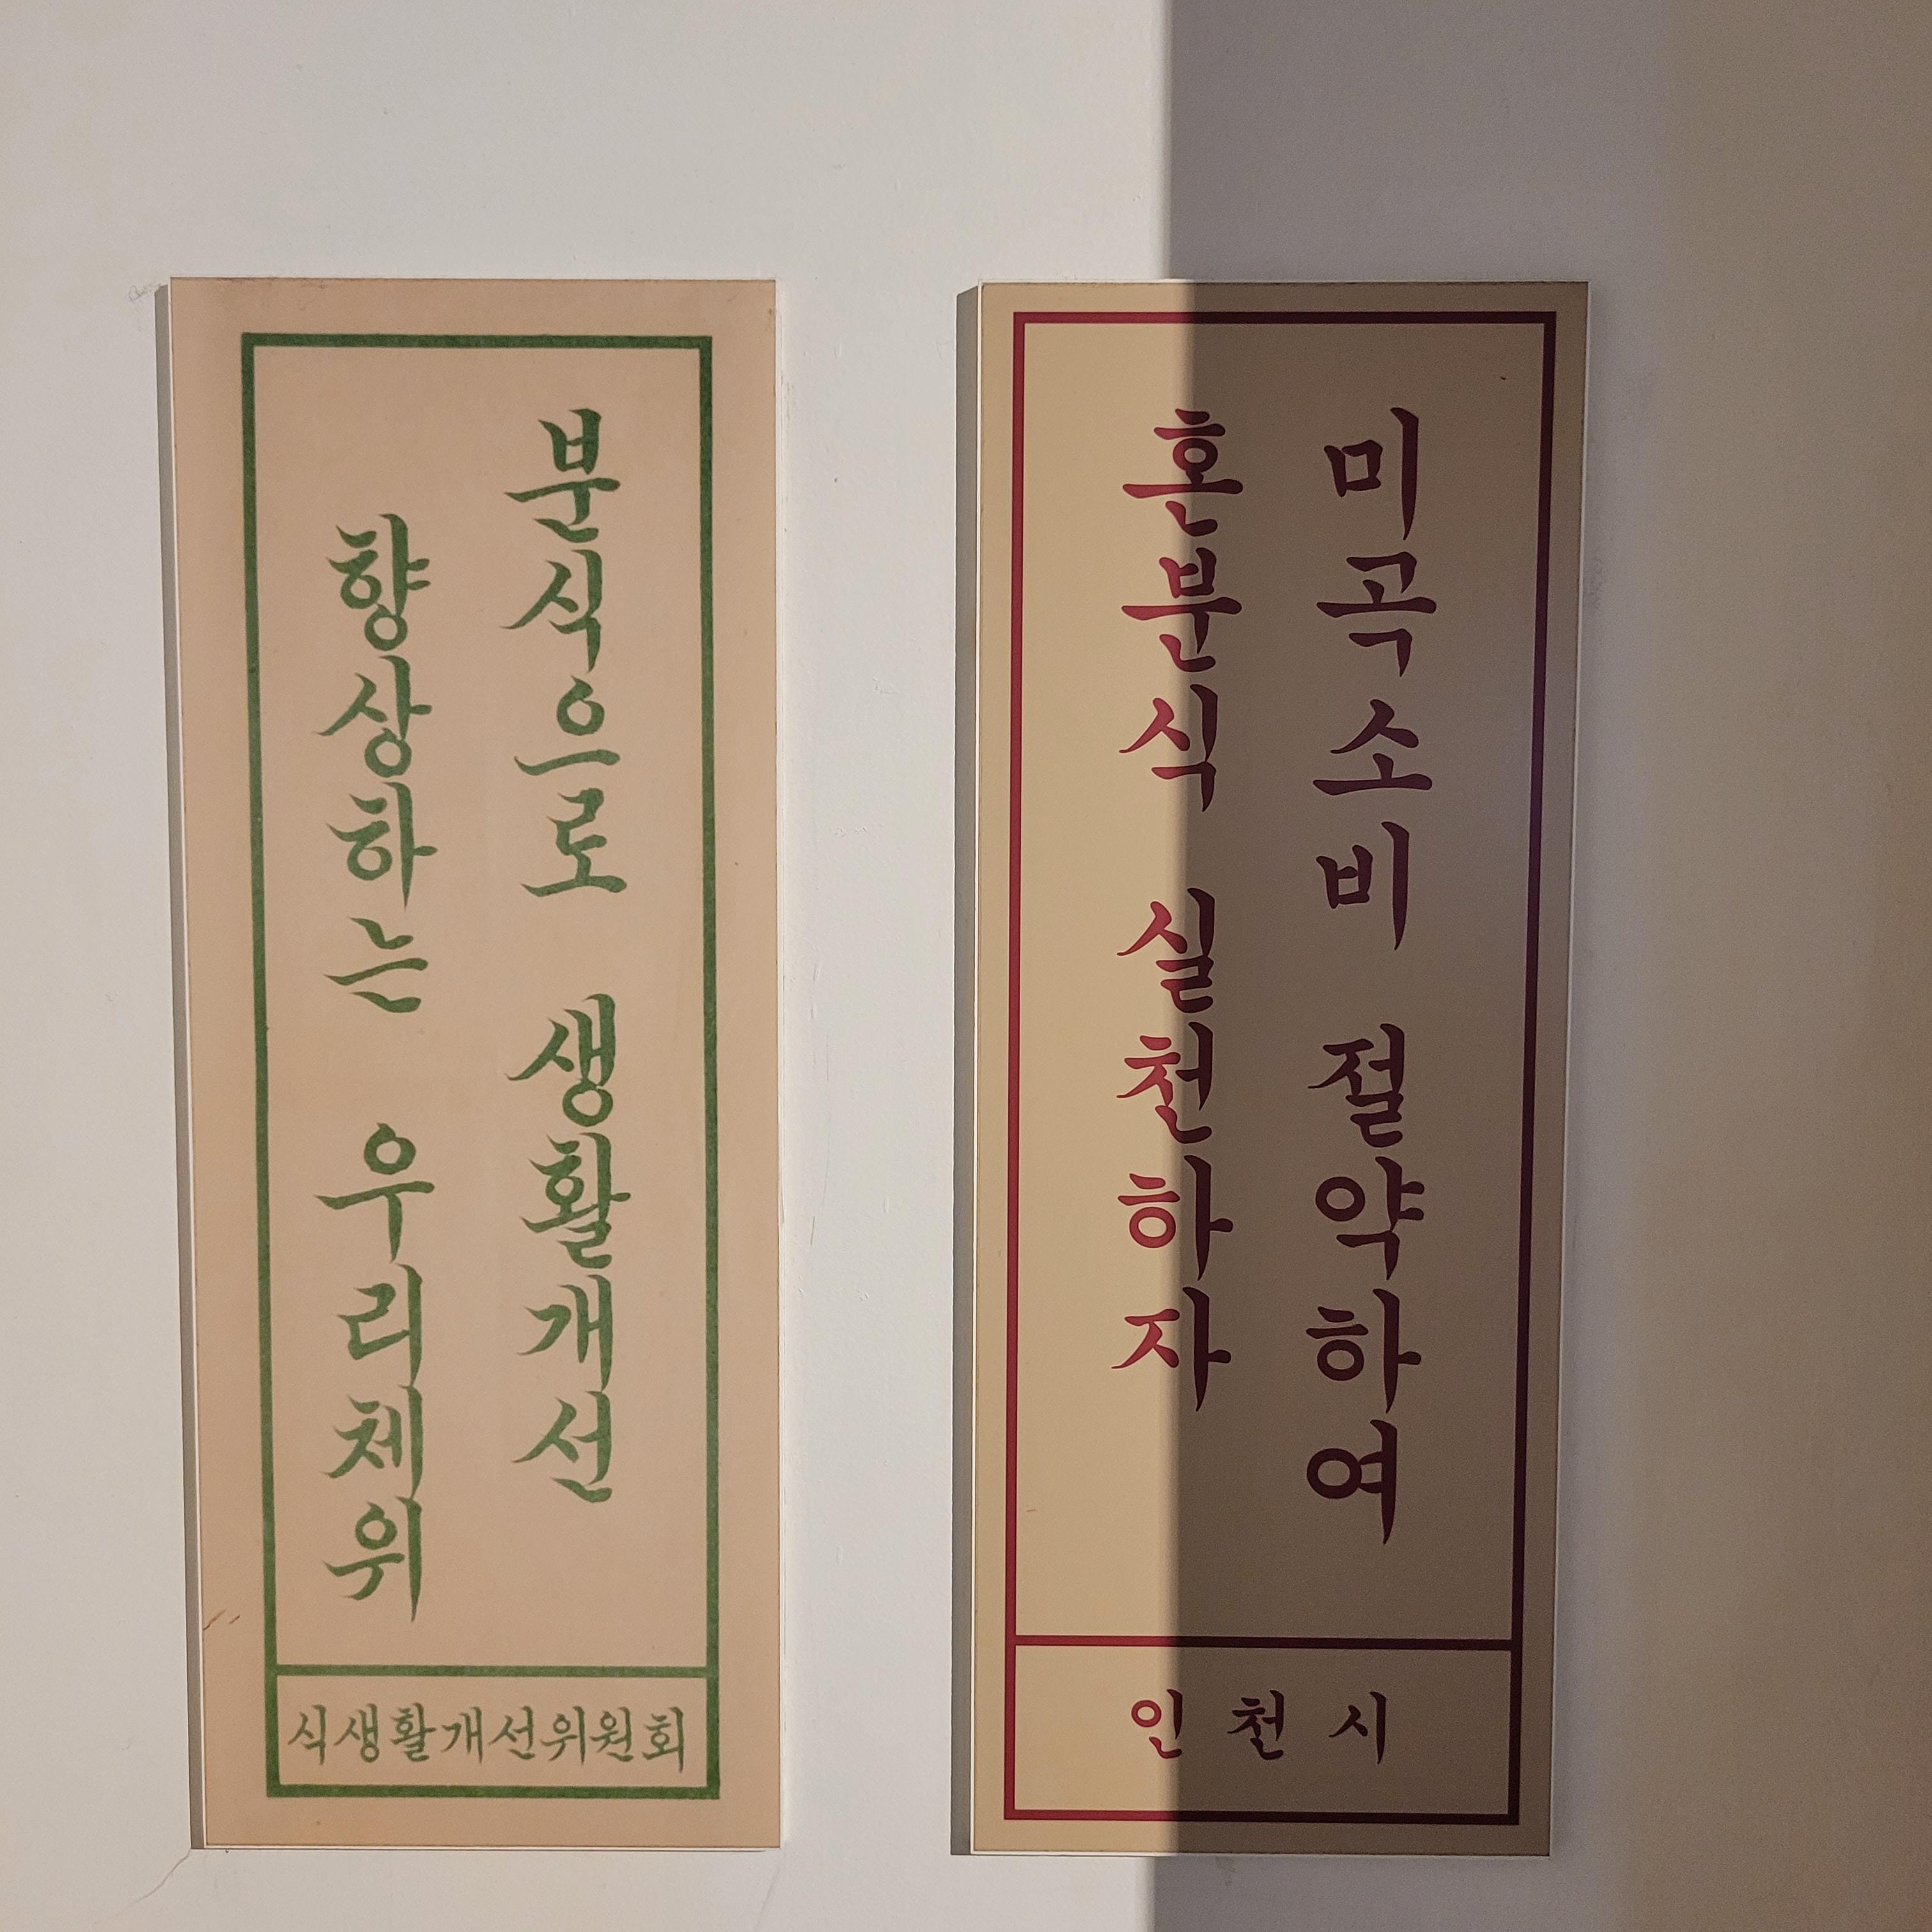 분식으로 생활개선
향상하는 우리체위
식생활개선위원회
미곡소비 절약하여
혼분식 실천하자
인천시